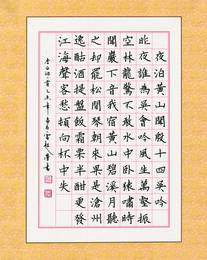 夜泊黄山聞殷十四吳吟
昨夜誰為吳會吟風生萬壑振
空林龍驚不敢水中卧猿嘯時
聞巖下音我宿黄山碧溪月聽
之却罷松間琴朝來果是滄洲
逸酤酒提盤飯霜栗半酣更發
江海聲客愁頓向杯中失
李白詩一首